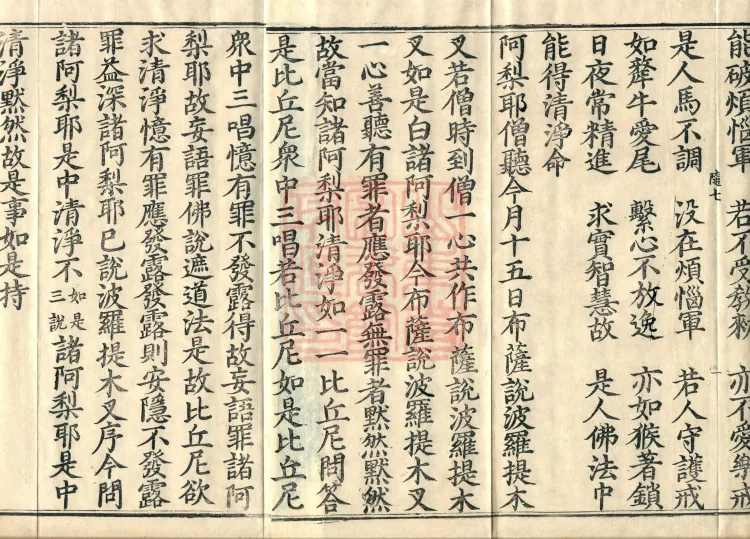 能破煩惱軍 若不受教敕 亦不愛樂戒
隨七
是人馬不調 没在煩惱軍 若人守護戒
如犛牛愛尾 繫心不放逸 亦如猴著鎖
日夜常精進 求實智慧故 是人佛法中
能得清淨命
阿梨耶僧聽今月十五日布薩說波羅提木
叉若僧時到僧一心共作布薩說波羅提木
叉如是白諸阿梨耶今布薩說波羅提木叉
一心善聽有罪者應發露無罪者默然默然
故當知諸阿梨耶清淨如一一比丘尼問答
是比丘尼衆中三唱若比丘尼如是比丘尼
衆中三唱憶有罪不發露得故妄語罪諸阿
梨耶故妄語罪佛說遮道法是故比丘尼欲
求清淨憶有罪應發露發露則安隱不發露
罪益深諸阿梨耶已說波羅提木叉序今問
諸阿梨耶是中清淨不如是三說諸阿梨耶是中
清淨默然故是事如是持